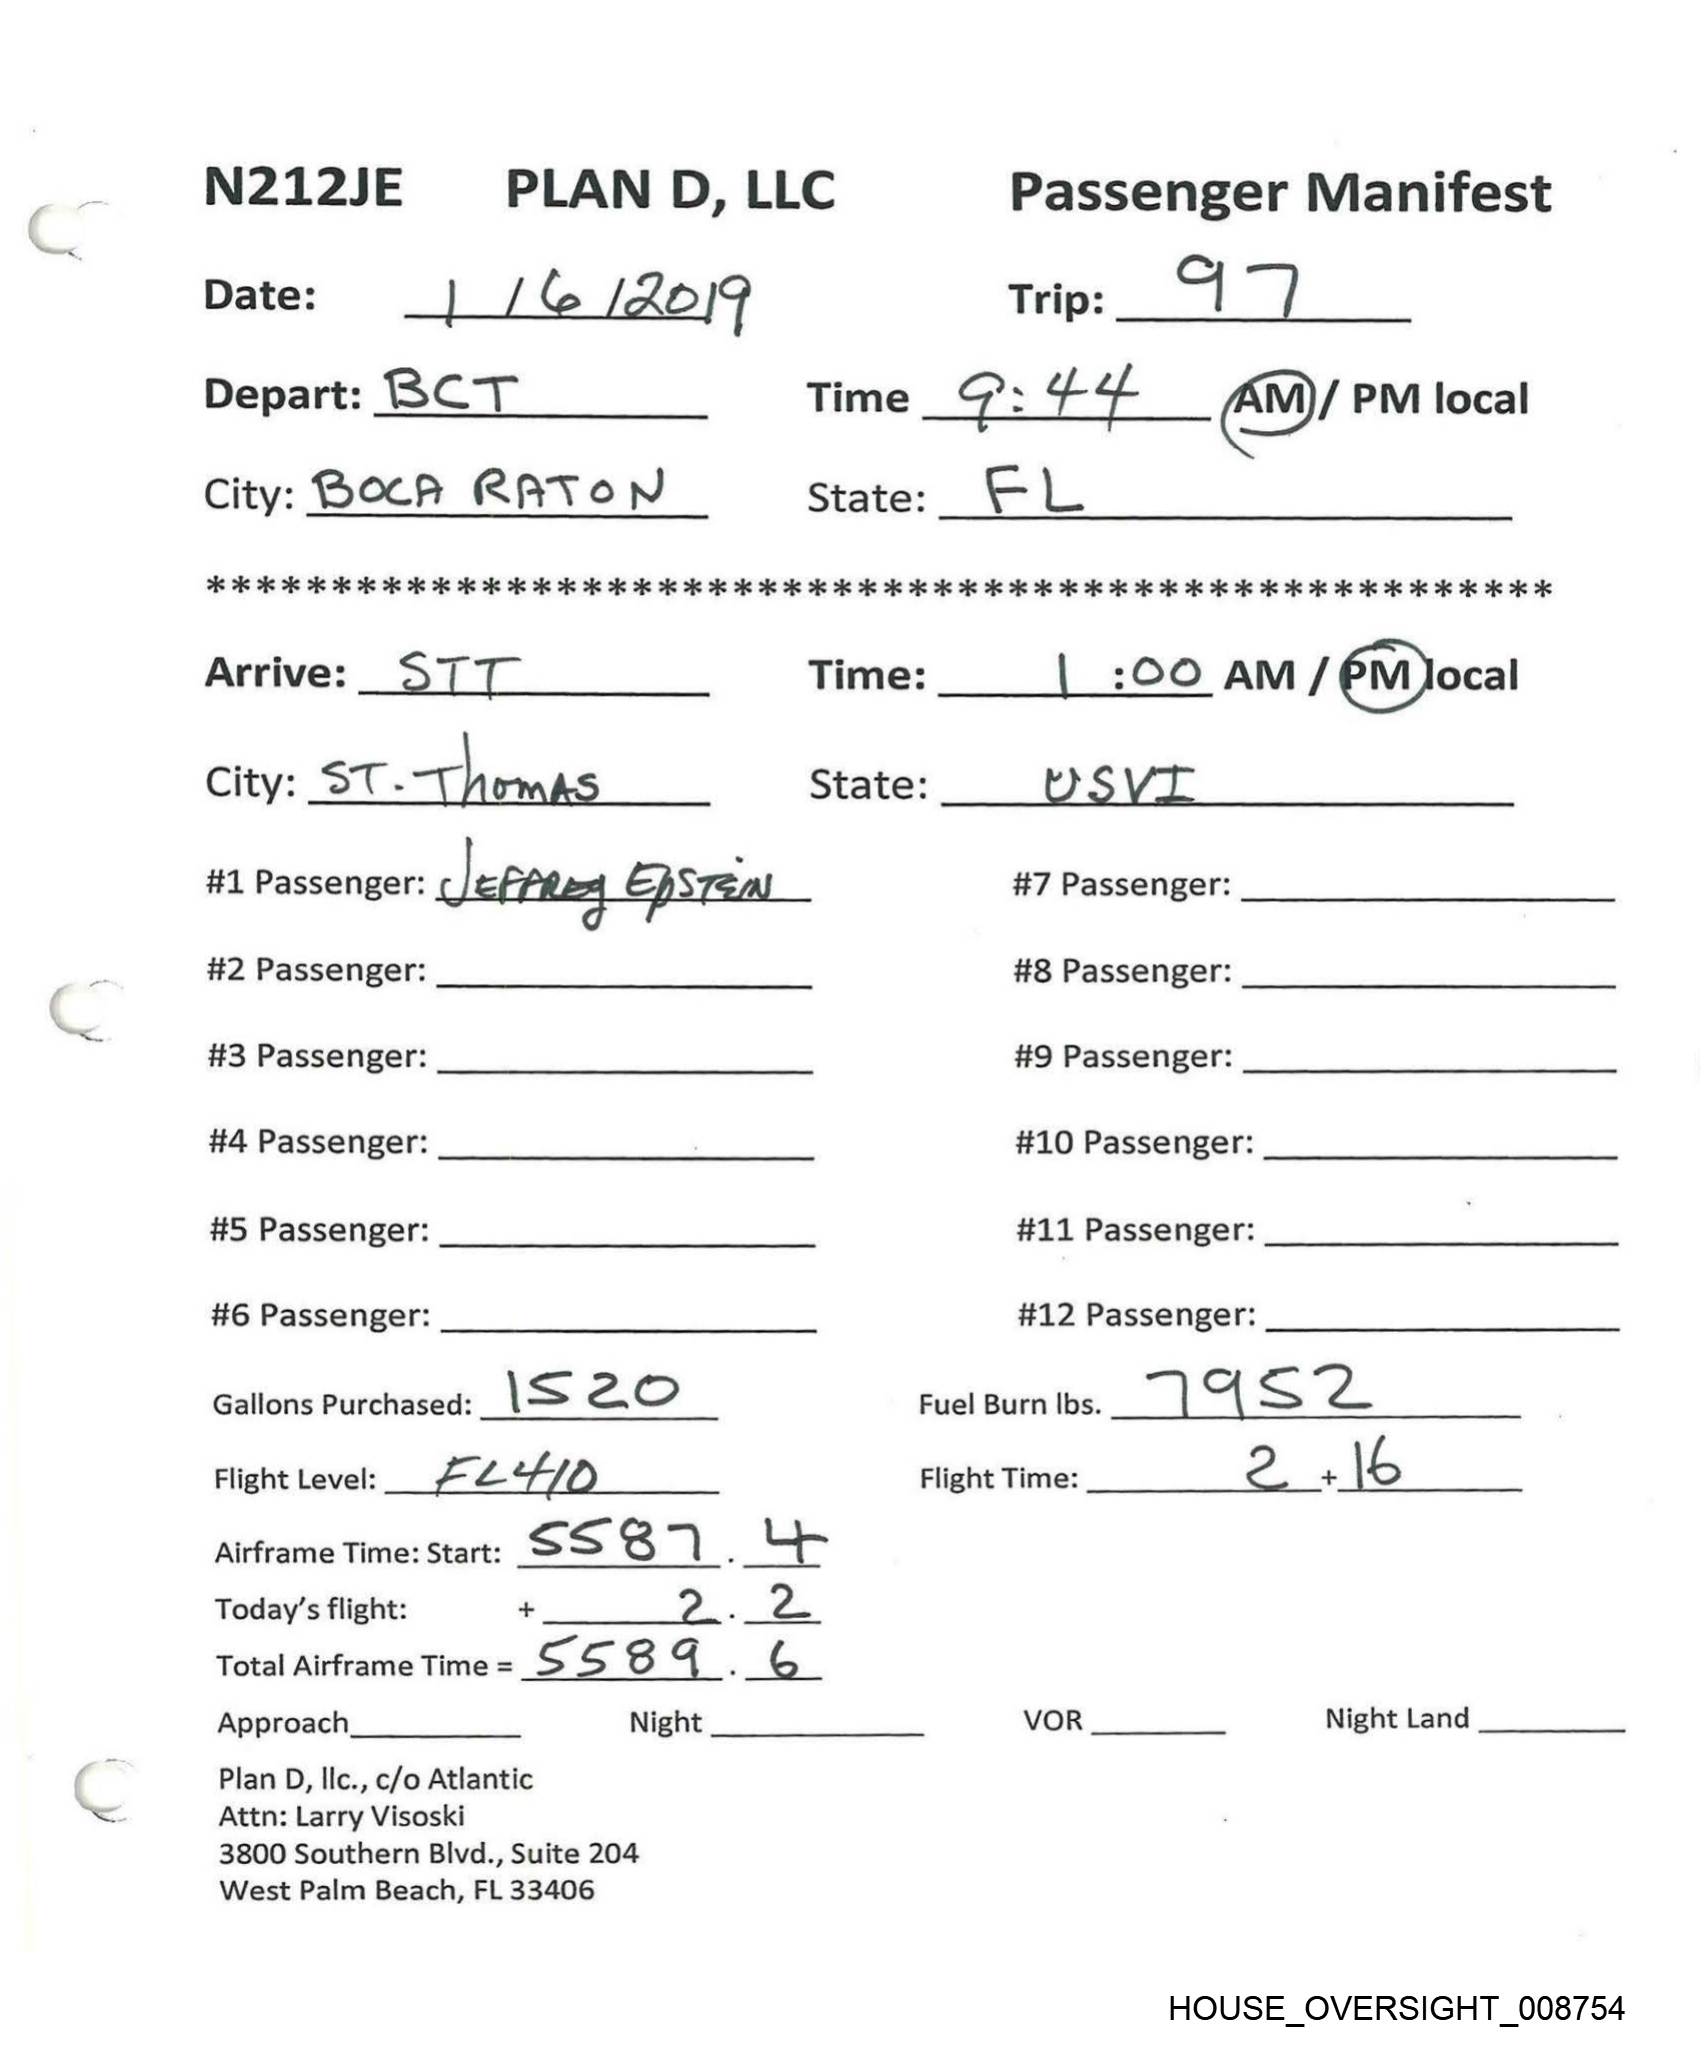 N212JE PLAN D, LLC Passenger Manifest
Date: 1/6/2019 Trip: 97
Depart: BCT Time 9:44 AM / PM local
City: BOCA RATON State: FL
******************************************************
Arrive: STT Time: 1:00 AM / PM local
City: ST. Thomas State: USVI
#1 Passenger: Jeffrey Epstein #7 Passenger:
#2 Passenger: #8 Passenger:
#3 Passenger: #9 Passenger:
#4 Passenger: #10 Passenger:
#5 Passenger: #11 Passenger:
#6 Passenger: #12 Passenger:
Gallons Purchased: 1520 Fuel Burn lbs. 7952
Flight Level: FL410 Flight Time: 2 + 16
Airframe Time: Start: 5587.4
Today's flight: + 2.2
Total Airframe Time = 5589.6
Approach Night VOR Night Land
Plan D, llc., c/o Atlantic
Attn: Larry Visoski
3800 Southern Blvd., Suite 204
West Palm Beach, FL 33406
HOUSE_OVERSIGHT_008754